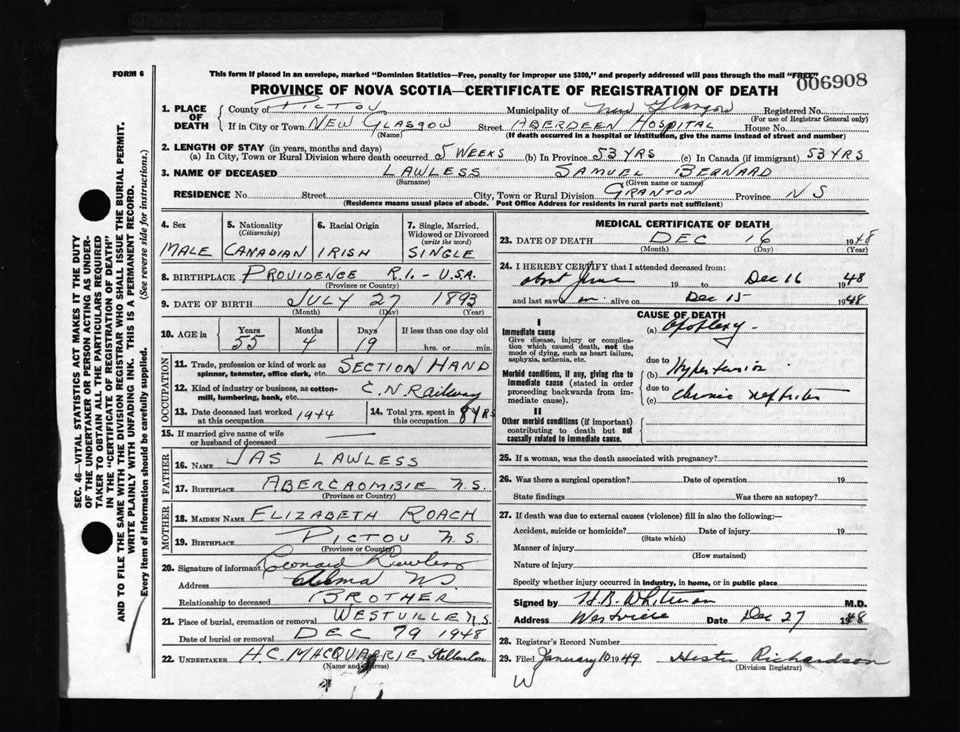 FORM 6
This form if placed in an envelope, marked "Dominion Statistics—Free, penalty for improper use $300," and properly addressed will pass through the mail "FREE"
006908
PROVINCE OF NOVA SCOTIA—CERTIFICATE OF REGISTRATION OF DEATH
SEC. 46—VITAL STATISTICS ACT MAKES IT THE DUTY
OF THE UNDERTAKER OR PERSON ACTING AS UNDER-
TAKER TO OBTAIN ALL THE PARTICULARS REQUIRED
IN THE "CERTIFICATE OF REGISTRATION OF DEATH"
AND TO FILE THE SAME WITH THE DIVISION REGISTRAR WHO SHALL ISSUE THE BURIAL PERMIT.
WRITE PLAINLY WITH UNFADING INK. THIS IS A PERMANENT RECORD.
Every item of information should be carefully supplied. (See reverse side for instructions.)
1. PLACE OF DEATH
County of PICTOU Municipality of New Glasgow Registered No.
(For use of Registrar General only)
If in City or Town NEW GLASGOW Street ABERDEEN HOSPITAL House No.
(Name) (If death occurred in a hospital or institution, give the name instead of street and number)
2. LENGTH OF STAY (in years, months and days)
(a) In City, Town or Rural Division where death occurred 5 WEEKS (b) In Province 53 YRS (c) In Canada (if immigrant) 53 YRS
3. NAME OF DECEASED LAWLESS SAMUEL BERNARD
(Surname) (Given name or names)
RESIDENCE No. Street City, Town or Rural Division GRANTON Province NS
(Residence means usual place of abode. Post Office Address for residents in rural parts not sufficient)
4. Sex
MALE
5. Nationality
(Citizenship)
CANADIAN
6. Racial Origin
IRISH
7. Single, Married,
Widowed or Divorced
(write the word)
SINGLE
8. BIRTHPLACE PROVIDENCE R.I.- U.S.A.
(Province or Country)
9. DATE OF BIRTH JULY 27 1893
(Month) (Day) (Year)
10. AGE in
Years Months Days If less than one day old
55 4 19 hrs. or min.
OCCUPATION
11. Trade, profession or kind of work as SECTION HAND
spinner, teamster, office clerk, etc.
12. Kind of industry or business, as cotton- C.N Railway
mill, lumbering, bank, etc.
13. Date deceased last worked 1944
at this occupation
14. Total yrs. spent in 8 YRS
this occupation
15. If married give name of wife
or husband of deceased
FATHER
16. NAME JAS LAWLESS
17. BIRTHPLACE ABERCROMBIE N.S.
(Province or Country)
MOTHER
18. MAIDEN NAME ELIZABETH ROACH
19. BIRTHPLACE PICTOU N.S.
(Province or Country)
20. Signature of informant Leonard Lawless
Address Alma NS
Relationship to deceased BROTHER
21. Place of burial, cremation or removal WESTVILLE N.S.
Date of burial or removal DEC 1948
22. UNDERTAKER H.C. MACQUARRIE Stellarton
(Name and address)
MEDICAL CERTIFICATE OF DEATH
23. DATE OF DEATH DEC 16 1948
(Month) (Day) (Year)
24. I HEREBY CERTIFY that I attended deceased from:
about June 19 to Dec 16 1948
and last saw on alive on Dec 15 1948
CAUSE OF DEATH
I
Immediate cause
Give disease, injury or complica-
tion which caused death, not the
mode of dying, such as heart failure,
asphyxia, asthenia, etc.
(a) Apoplexy
due to
Morbid conditions, if any, giving rise to
immediate cause (stated in order
proceeding backwards from im-
mediate cause).
(b) Hypertension
due to
(c) chronic nephritis
II
Other morbid conditions (if important)
contributing to death but not
causally related to immediate cause.
25. If a woman, was the death associated with pregnancy?
26. Was there a surgical operation? Date of operation 19
State findings Was there an autopsy?
27. If death was due to external causes (violence) fill in also the following:—
Accident, suicide or homicide? Date of injury 19
(State which)
Manner of injury
(How sustained)
Nature of injury
Specify whether injury occurred in industry, in home, or in public place
Signed by H.B. Whitman M.D.
Address Westville Date Dec 27 1948
28. Registrar's Record Number
29. Filed January 10 1949 Hester Richardson
(Division Registrar)
W